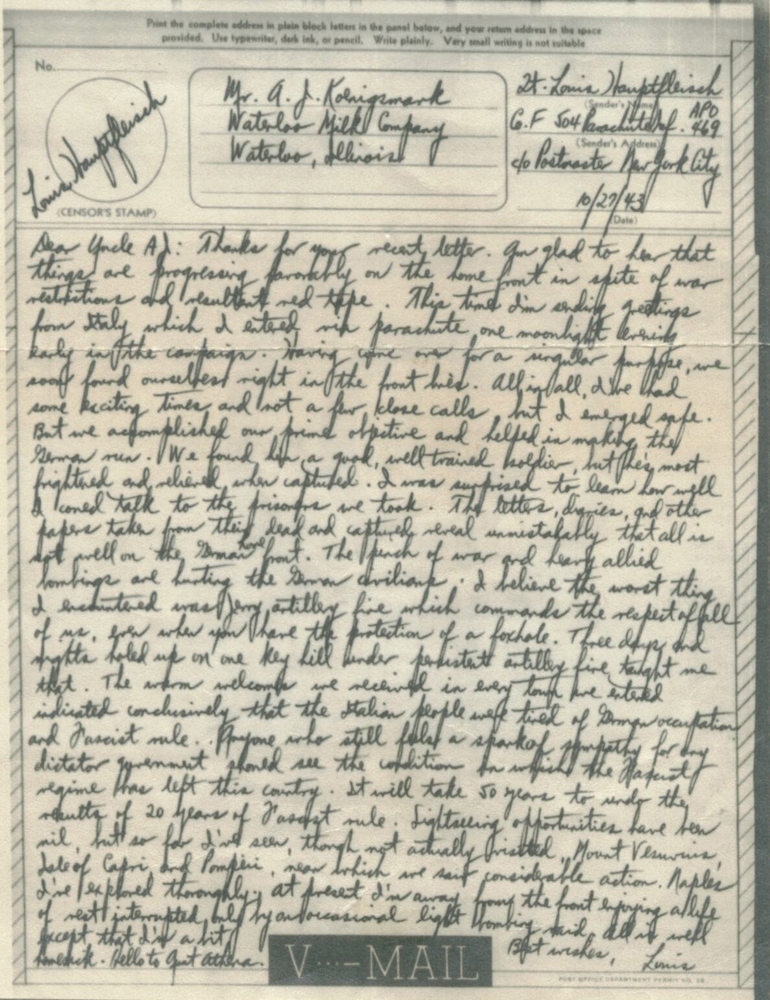 Print the complete address in plain block letters in the panel below, and your return address in the space
provided. Use typewriter, dark ink, or pencil. Write plainly. Very small writing is not suitable
No.
Louis Hauptfleisch
(CENSOR'S STAMP)
Mr. A. J. Koenigsmark
Waterloo Milk Company
Waterloo, Illinois
Lt. Louis Hauptfleisch
(Sender's Name)
Co. F 504 Parachute Inf. APO 469
(Sender's Address)
c/o Postmaster New York City
10/27/43
(Date)
Dear Uncle AJ: Thanks for your recent letter. Am glad to hear that
things are progressing favorably on the home front in spite of war
restrictions and resultant red tape. This time I'm sending greetings
from Italy which I entered via parachute one moonlight evening
early in the campaign. Having come over for a singular purpose, we
soon found ourselves right in the front lines. All in all, I've had
some exciting times and not a few close calls, but I emerged safe.
But we accomplished our prime objective and helped in making the
German run. We found him a good, well trained soldier, but he's most
frightened and relieved when captured. I was surprised to learn how well
I coned talk to the prisoners we took. The letters, diaries, and other
papers taken from their dead and captured reveal unmistakably that all is
not well on the German home front. The pinch of war and heavy allied
bombings are hurting the German civilians. I believe the worst thing
I encountered was Jerry artillery fire which commands the respect of all
of us, even when you have the protection of a foxhole. Three days and
nights holed up on one key hill under persistent artillery fire taught me
that. The warm welcomes we received in every town we entered
indicated conclusively that the Italian people were tired of German occupation
and Fascist rule. Anyone who still feels a spark of sympathy for any
dictator government should see the condition in which the Fascist
regime has left this country. It will take 50 years to undo the
results of 20 years of Fascist rule. Sightseeing opportunities have been
nil, but so far I've seen, though not actually visited, Mount Vesuvius,
Isle of Capri, and Pompeii, near which we saw considerable action. Naples
I've explored thoroughly. At present I'm away from the front enjoying a life
of rest interrupted only by an occasional light bombing raid. All is well
except that I'm a bit
homesick. Hello to Aunt Athena.
Best wishes,
Louis
V···—MAIL
POST OFFICE DEPARTMENT PERMIT NO.